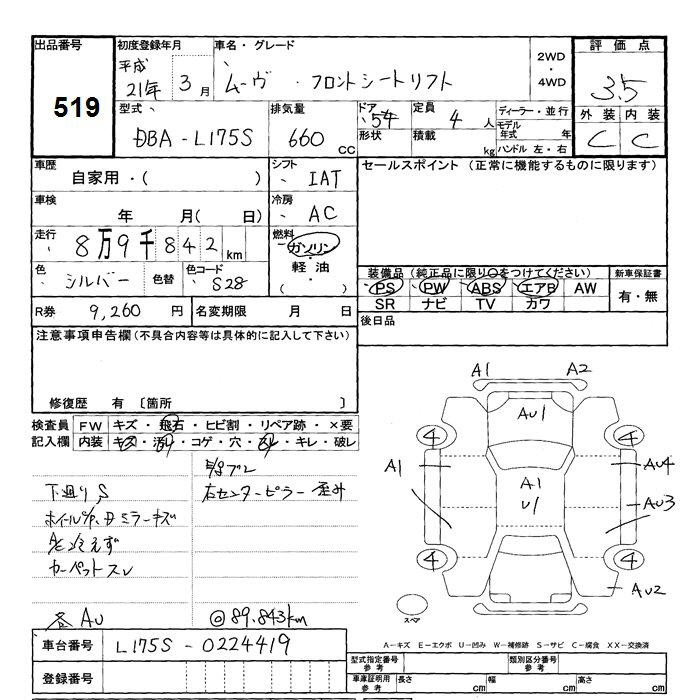 出品番号 初度登録年月 車名・グレード 評価点
519
平成21年3月
ムーヴ・フロントシートリフト
2WD・4WD
3.5
外装 内装
C C
型式 DBA-L175S
排気量 660 CC
ドア 5ﾄ
形状
定員 4人
積載 kg
ディーラー・並行
モデル年式 年
ハンドル 左・右
車歴 自家用・( )
シフト IAT
セールスポイント (正常に機能するものに限ります)
車検 年 月( 日)
冷房 AC
走行 8万9千842km
燃料 ガソリン・軽油・( )
色 シルバー 色替 色コード S28
装備品 (純正品に限り○をつけてください) 新車保証書
PS PW ABS エアB AW 有・無
SR ナビ TV カワ
R券 9,260円 名変期限 月 日
後日品
注意事項申告欄 (不具合内容等は具体的に記入して下さい)
修復歴 有 〔箇所 〕
検査員記入欄
FW キズ・飛石・ヒビ割・リペア跡・×要
内装 キズ・汚れ・コゲ・穴・スレ・キレ・破レ
下廻りS 右センターピラー歪み
カーペットスレ
各AU ◎89,843km
A1 A2
AU1
4 4
A1 A1 AU4
U1 AU3
4 4
AU2
スペア
A-キズ E-エクボ U-凹み W-補修跡 S-サビ C-腐食 XX-交換済
車台番号 L175S-0224419
登録番号
型式指定番号 参考 類別区分番号 参考
車庫証明用 参考 長さ cm 幅 cm 高さ cm